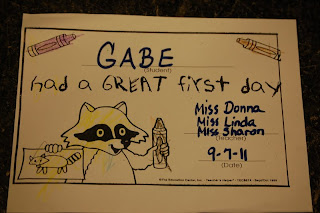 GABE
(Student)
had a GREAT first day
Miss Donna
Miss Linda
Miss Sharon
(Teacher)
9-7-11
(Date)